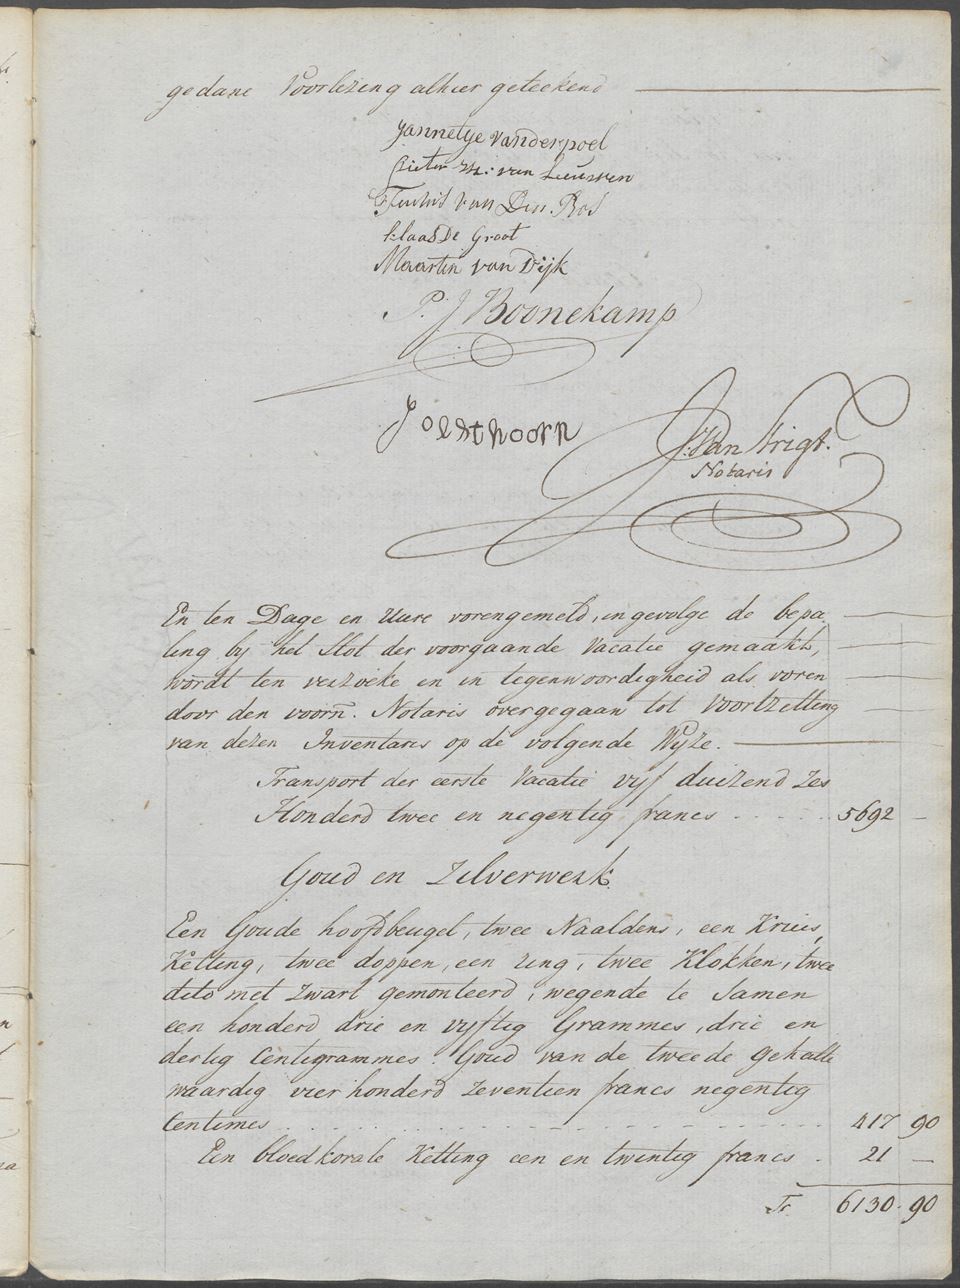 gedane Voorlezing alhier geteekend
Jannetje vanderpoel
Pieter van Leeuwen
Teunis van Den Bos
klaas De Groot
Maarten van Dijk
P. J. Boonekamp
J oldthoorn
J: Van Trigt.
Notaris
En ten Dage en Uure vorengemeld, ingevolge de bepa
ling by het Slot der voorgaande Vacatie gemaakt,
wordt ten verzoeke en in tegenwoordigheid als voren
door den voorn. Notaris overgegaan tot Voortzetting
van dezen Inventaris op de volgende Wyze.
Transport der eerste Vacatie vyf duizend Zes
Honderd twee en negentig francs . . . . . 5692 —
Goud en Zilverwerk
Een Goude hoofdbeugel, twee Naaldens, een Kruis,
Ketting, twee doppen, een ring, twee Klokken, twee
dito met Zwart gemonteerd, wegende te Samen
een honderd drie en vyftig Grammes, drie en
dertig Centigrammes. Goud van de tweede Gehalte
waardig vier honderd Zeventien francs negentig
Centimes . . . . . 417 90
Een bloedkorale Ketting een en twintig francs . 21 —
Fr. 6130. 90